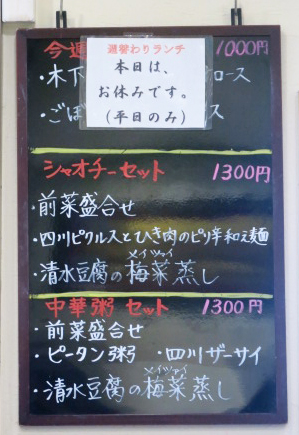 今週 1000円
週替わりランチ
本日は、
お休みです。
(平日のみ)
・木下 ロース
・ごぼ ス
シャオチーセット 1300円
・前菜盛合せ
・四川ピクルスとひき肉のピリ辛和え麺
メイツァイ
・清水豆腐の梅菜蒸し
中華粥 セット 1300円
・前菜盛合せ
・ピータン粥 ・四川ザーサイ
メイツァイ
・清水豆腐の梅菜蒸し